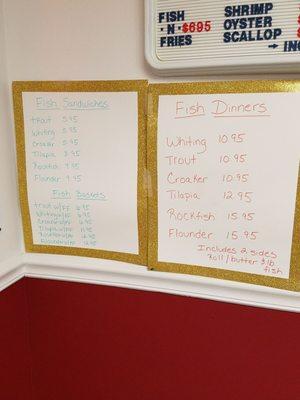 FISH
·N· $695
FRIES
SHRIMP
OYSTER
SCALLOP
Fish Sandwiches
Trout 5.95
Whiting 5.95
Croaker 5.95
Tilapia 8.95
Rockfish 9.95
Flounder 9.95
Fish Baskets
Trout w/FF 6.95
Whiting w/FF 6.95
Croaker w/FF
Tilapia w/FF
Rockfish w/FF
Flounder w/FF
Fish Dinners
Whiting 10.95
Trout 10.95
Croaker 10.95
Tilapia 12.95
Rockfish 15.95
Flounder 15.95
Includes 2 sides
Roll/butter & lb
fish